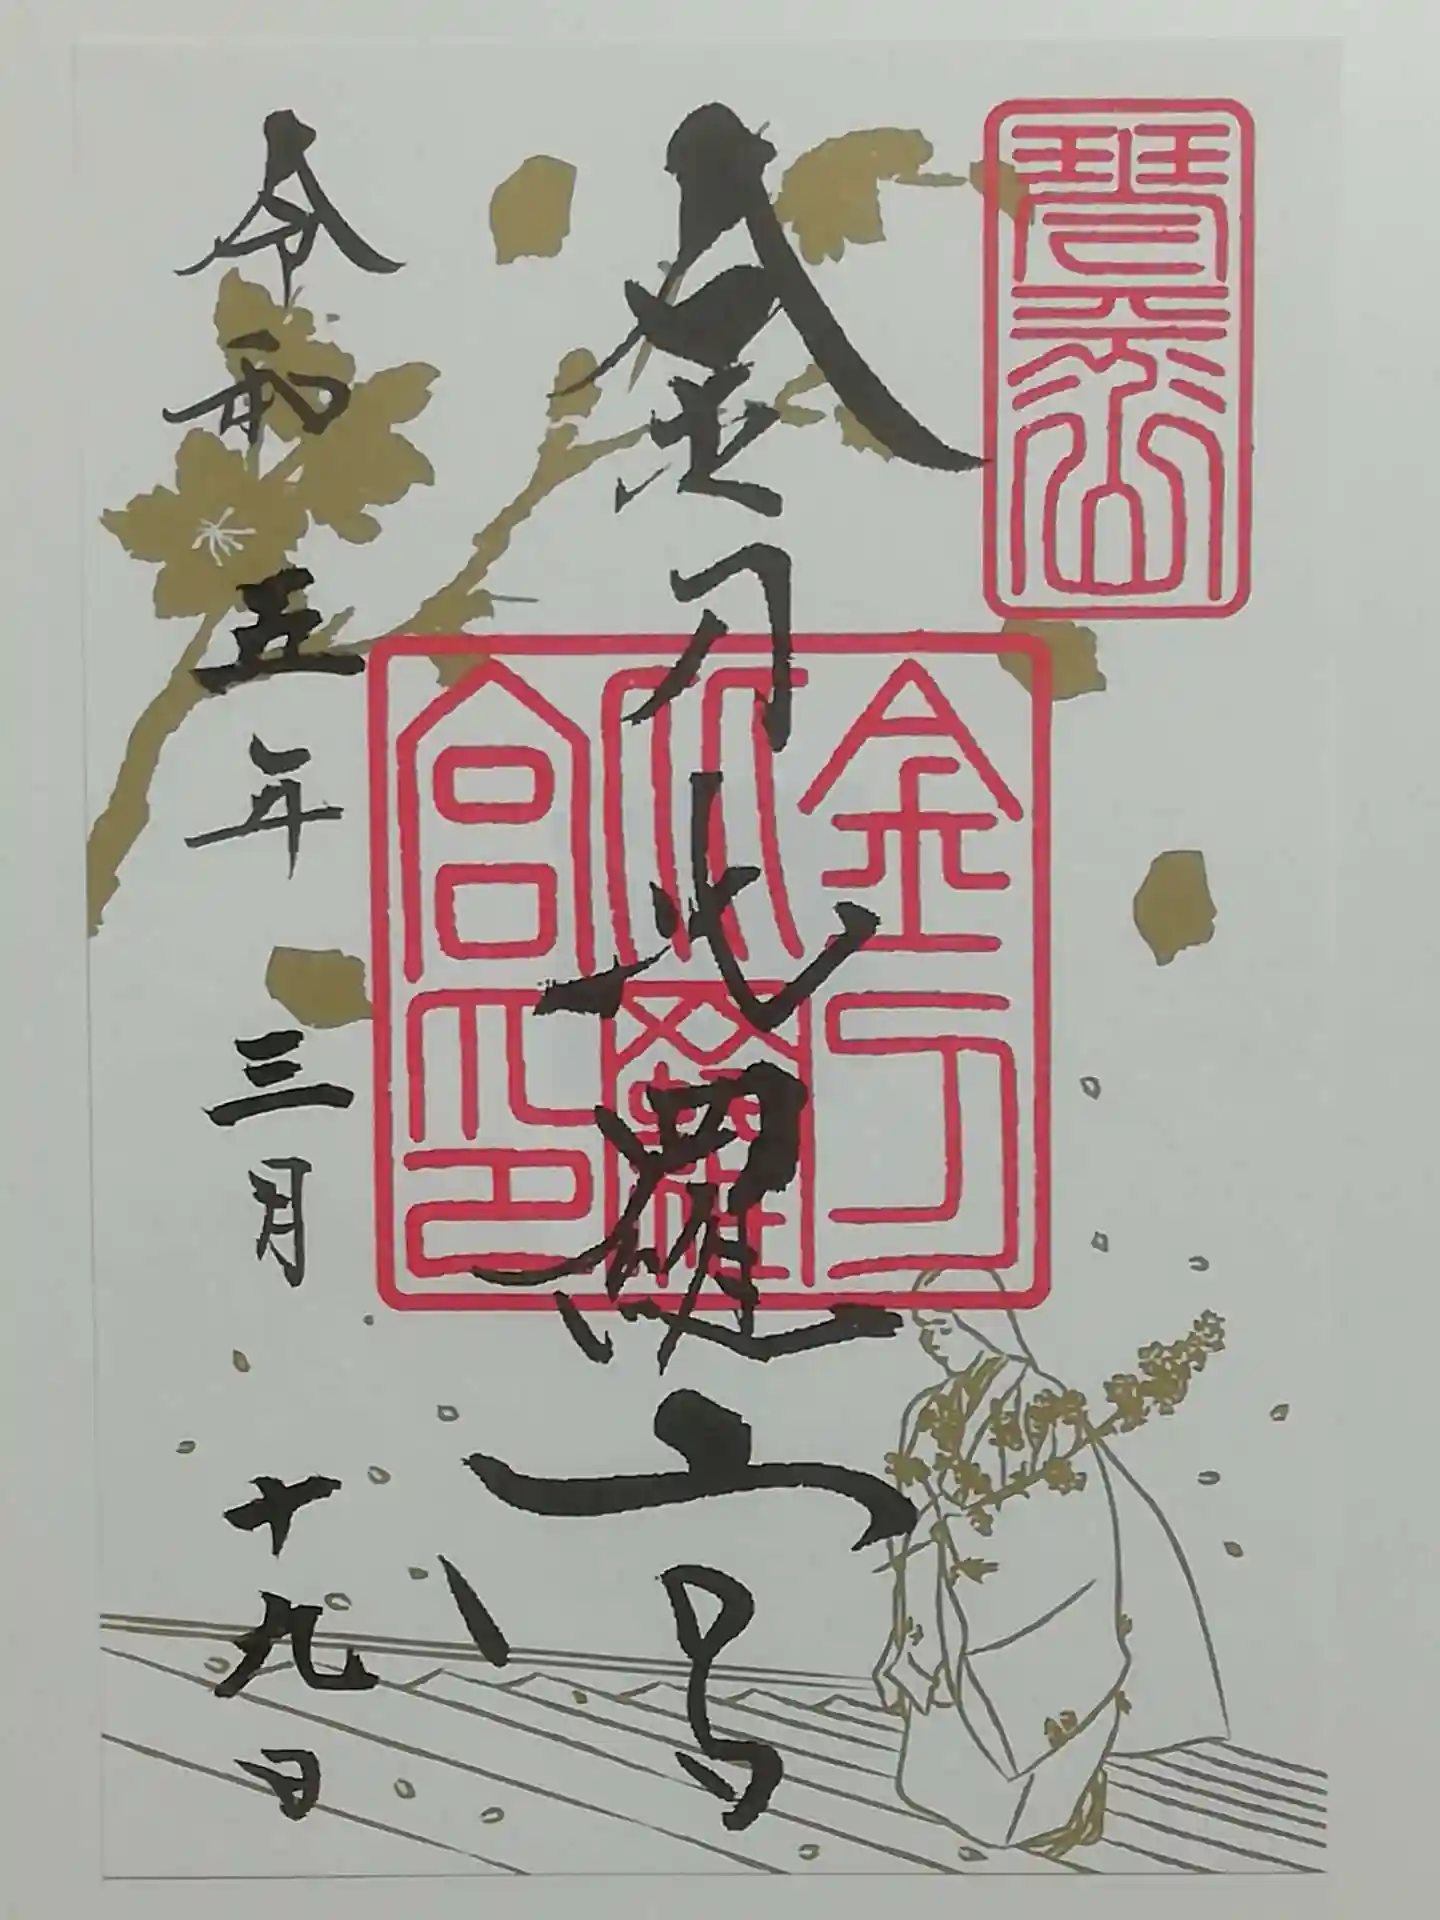 琴平山
金刀比羅宮
金刀
比羅
宮印
令和五年三月十九日